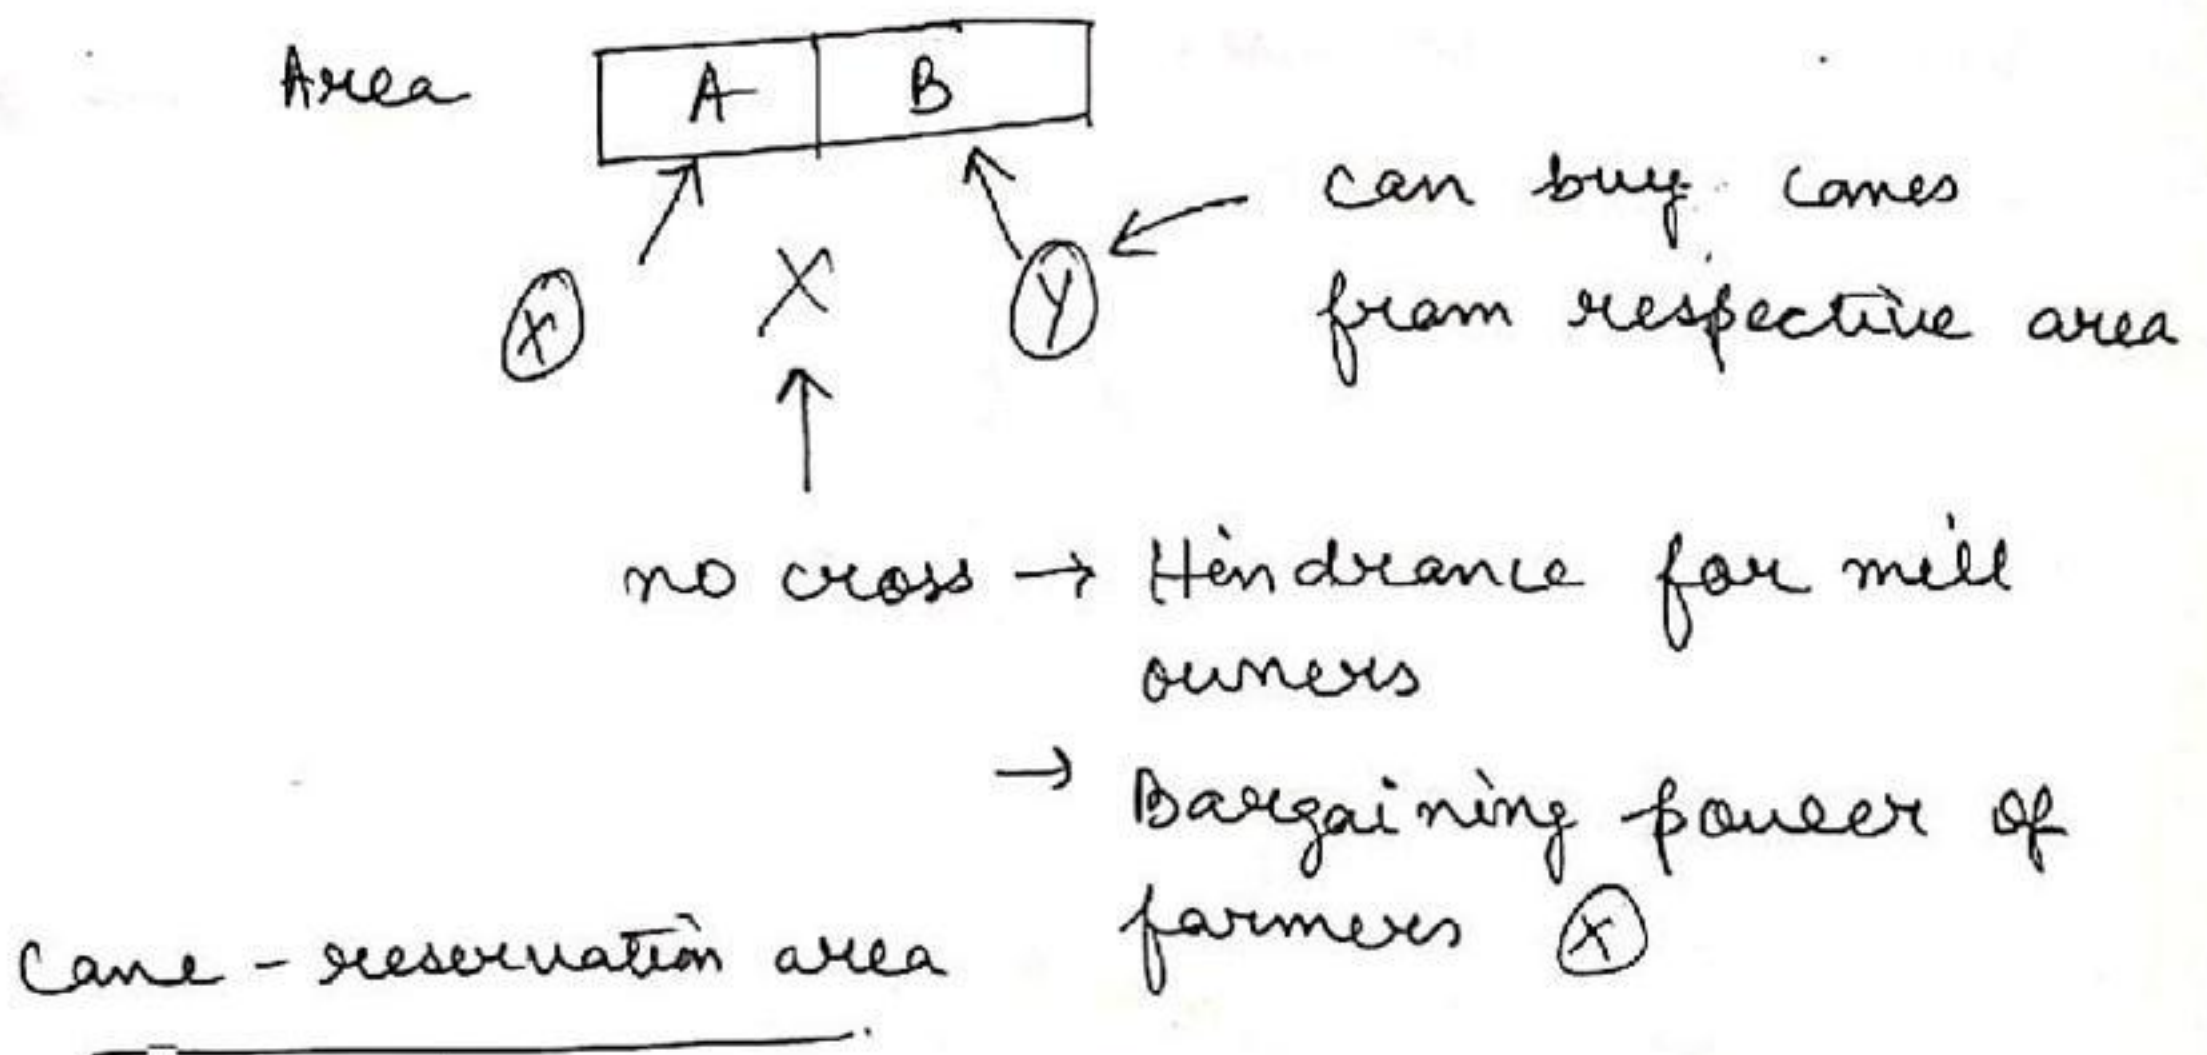 Area A B
can buy canes
X X Y
from respective area
no cross → Hindrance for mill
owners
→ Bargaining power of
farmers X
Cane-reservation area